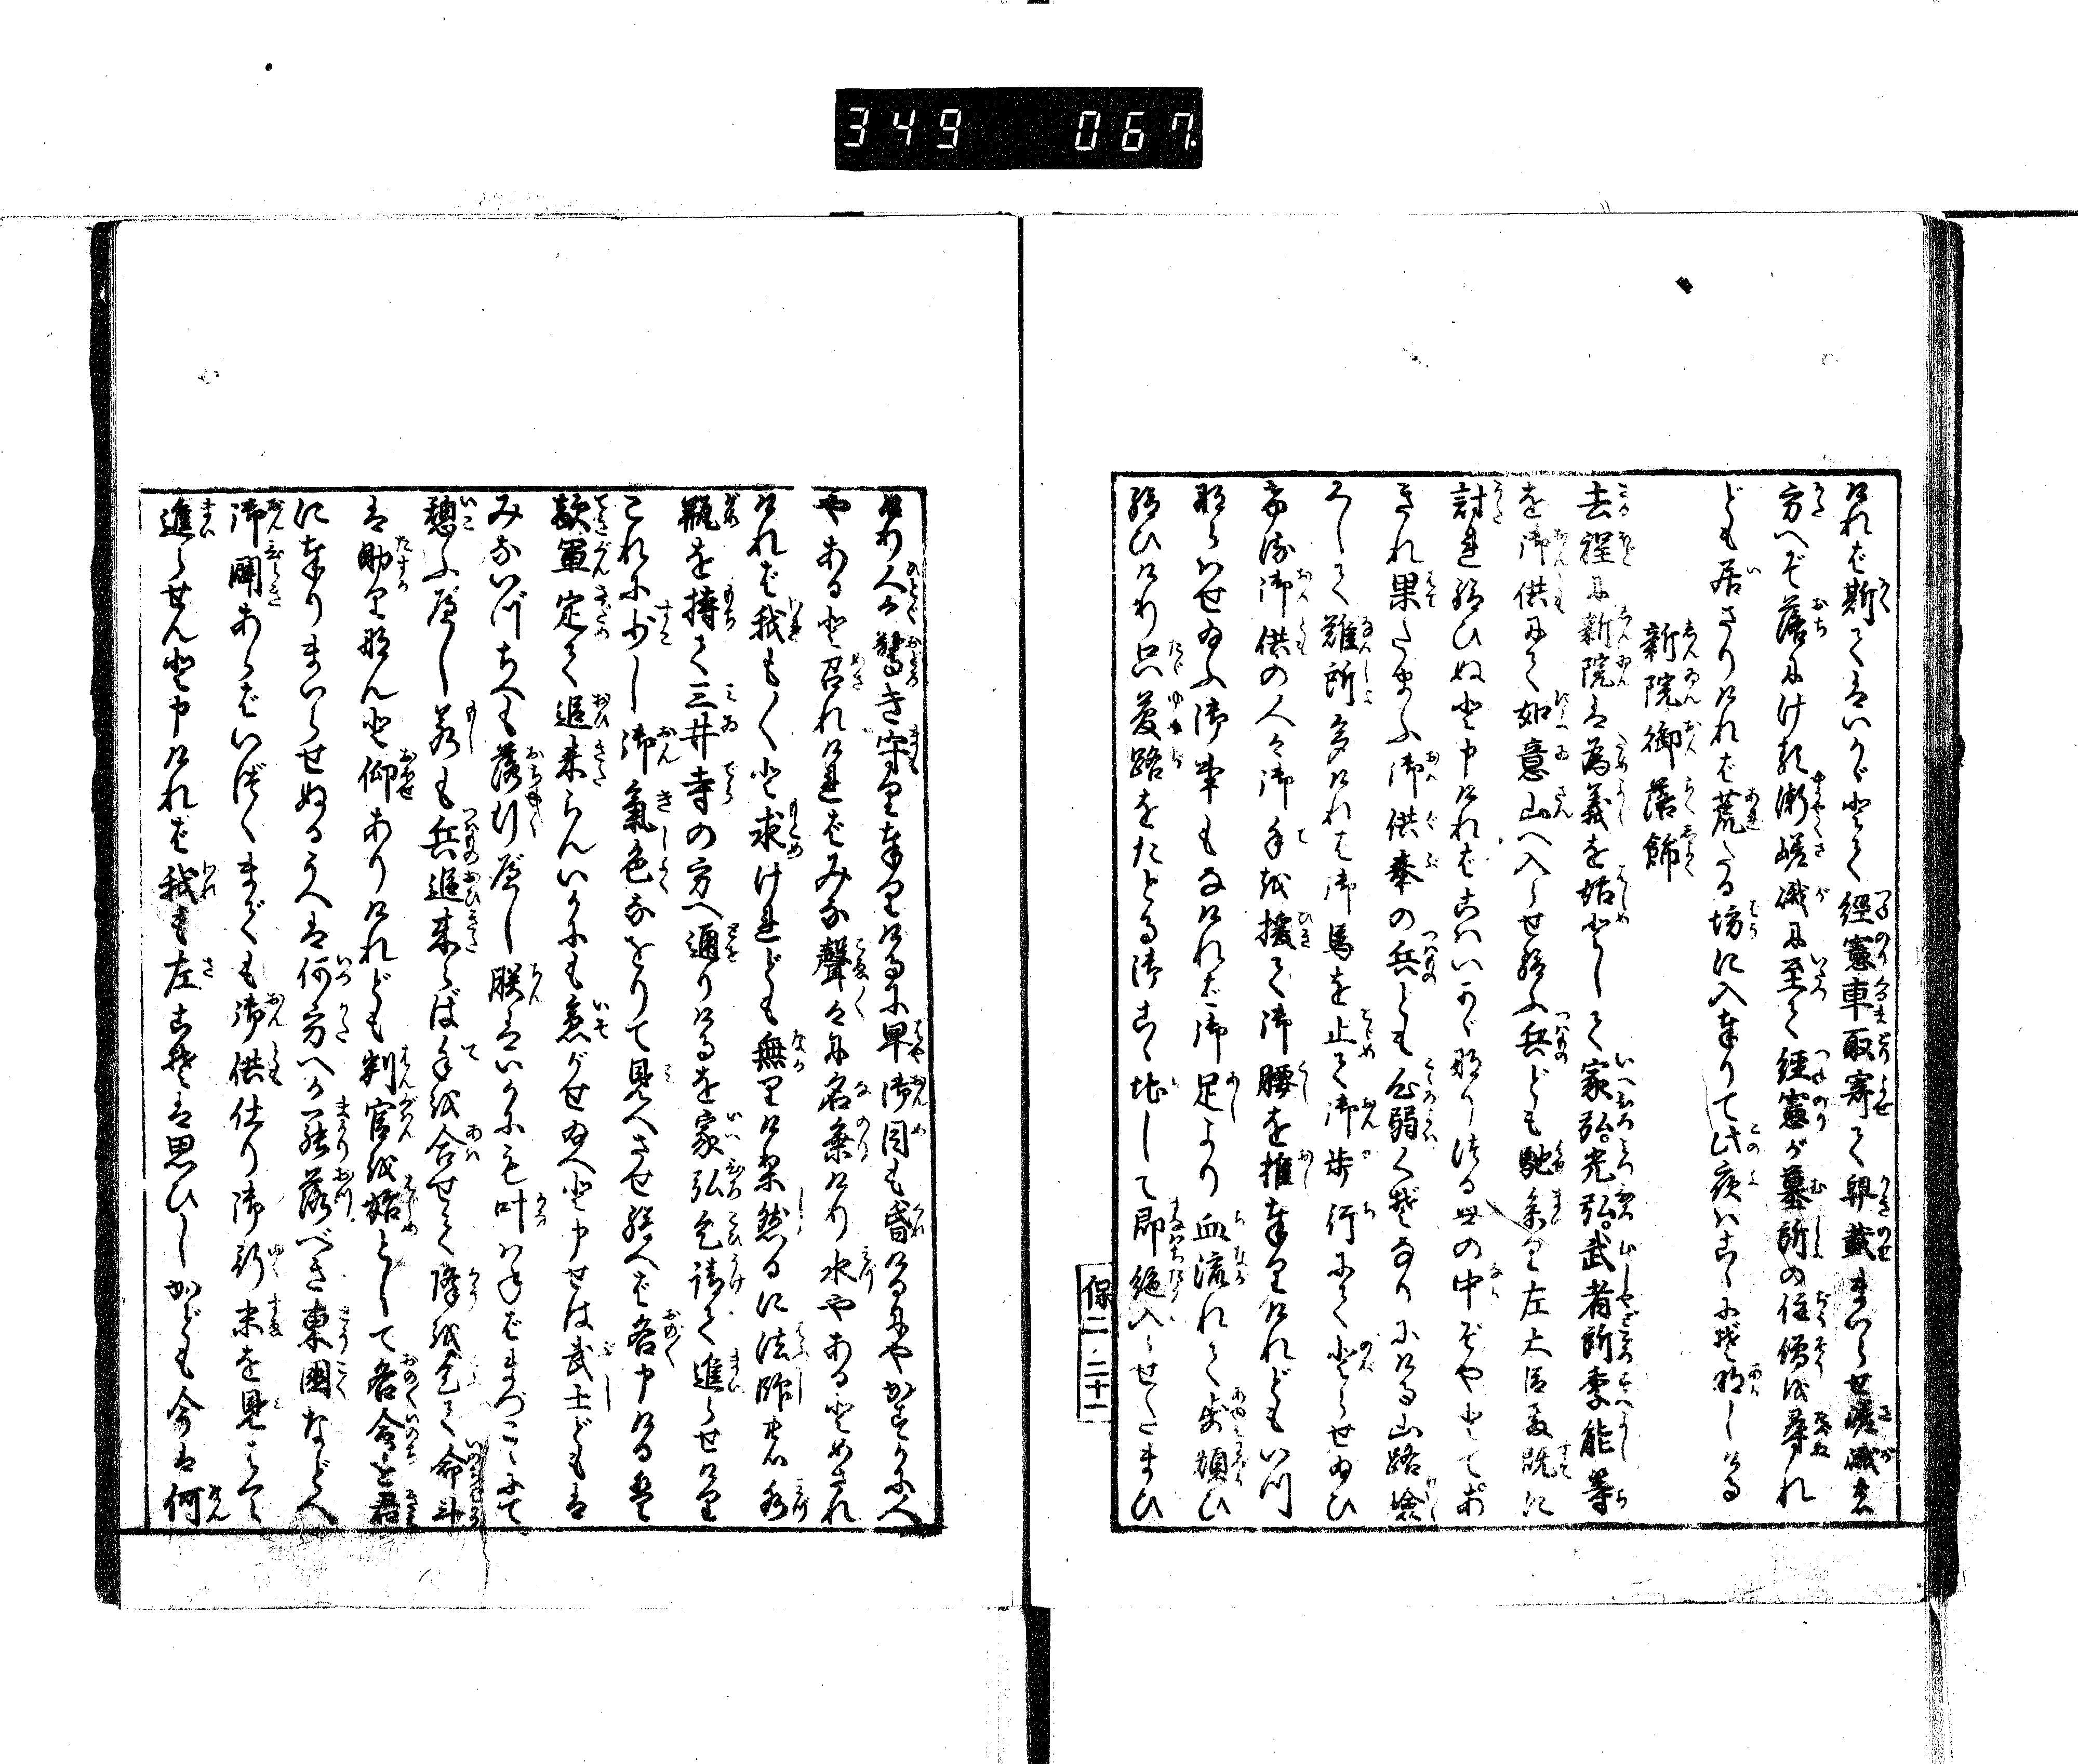 349 067
ければ斯てはいかゞとて經憲車取寄て舁載まゐらせ嵯峨の
方へぞ落にける漸嵯峨に至て經憲が墓所の住僧を尋れ
ども居ざりければ荒たる坊に入奉りて此夜はこゝにぞ明しける
新院御落飾
去程に新院は為義を始として家弘光弘武者所季能等
を御供にて如意山へ入らせ給ふ兵ども馳参り左大臣殿既に
討れ給ひぬと申ければこはいかゞ成りつる世の中ぞやとてあ
きれ果たまふ御供奉の兵ども心弱くぞなりにける山路嶮
くして難所多ければ御馬を止て御歩行にてぞとらせ給ひ
希御供の人々御手を援て御腰を推奉りけれどもいつ
ならはせ給ふ御事もなければ御足より血流れて歩煩ひ
給ひけり只夢路をたとる御こゝ地して即絶入らせたまひ
保二 二十二
けり人々驚き守り奉りけるに早御目も昏けるにやかすかに人
やあると召れければみな聲々に名乗けり水やあるとめされ
ければ我も〳〵と求けれども無りけり然るに法師の水
瓶を持て三井寺の方へ通りけるを家弘乞請て進らせけり
これに少し御氣色なをりて見へさせ給へば各申けるは
敵軍定て追来らんいかにも急がせ給へと申せば武士どもは
みないづちへも落行べし朕はいかにも叶はねばまづこゝにて
憩ふべし若も兵追来らば手を合せて降を乞て命斗
は助りなんと仰ありけれども判官を始として各命を君
に奉りまいらせぬるうへは何方へか罷落べき東國などへ
御開あらばいづくまでも御供仕り御行末を見まいらせ
進らせん申ければ我も左こそは思ひしかども今は何